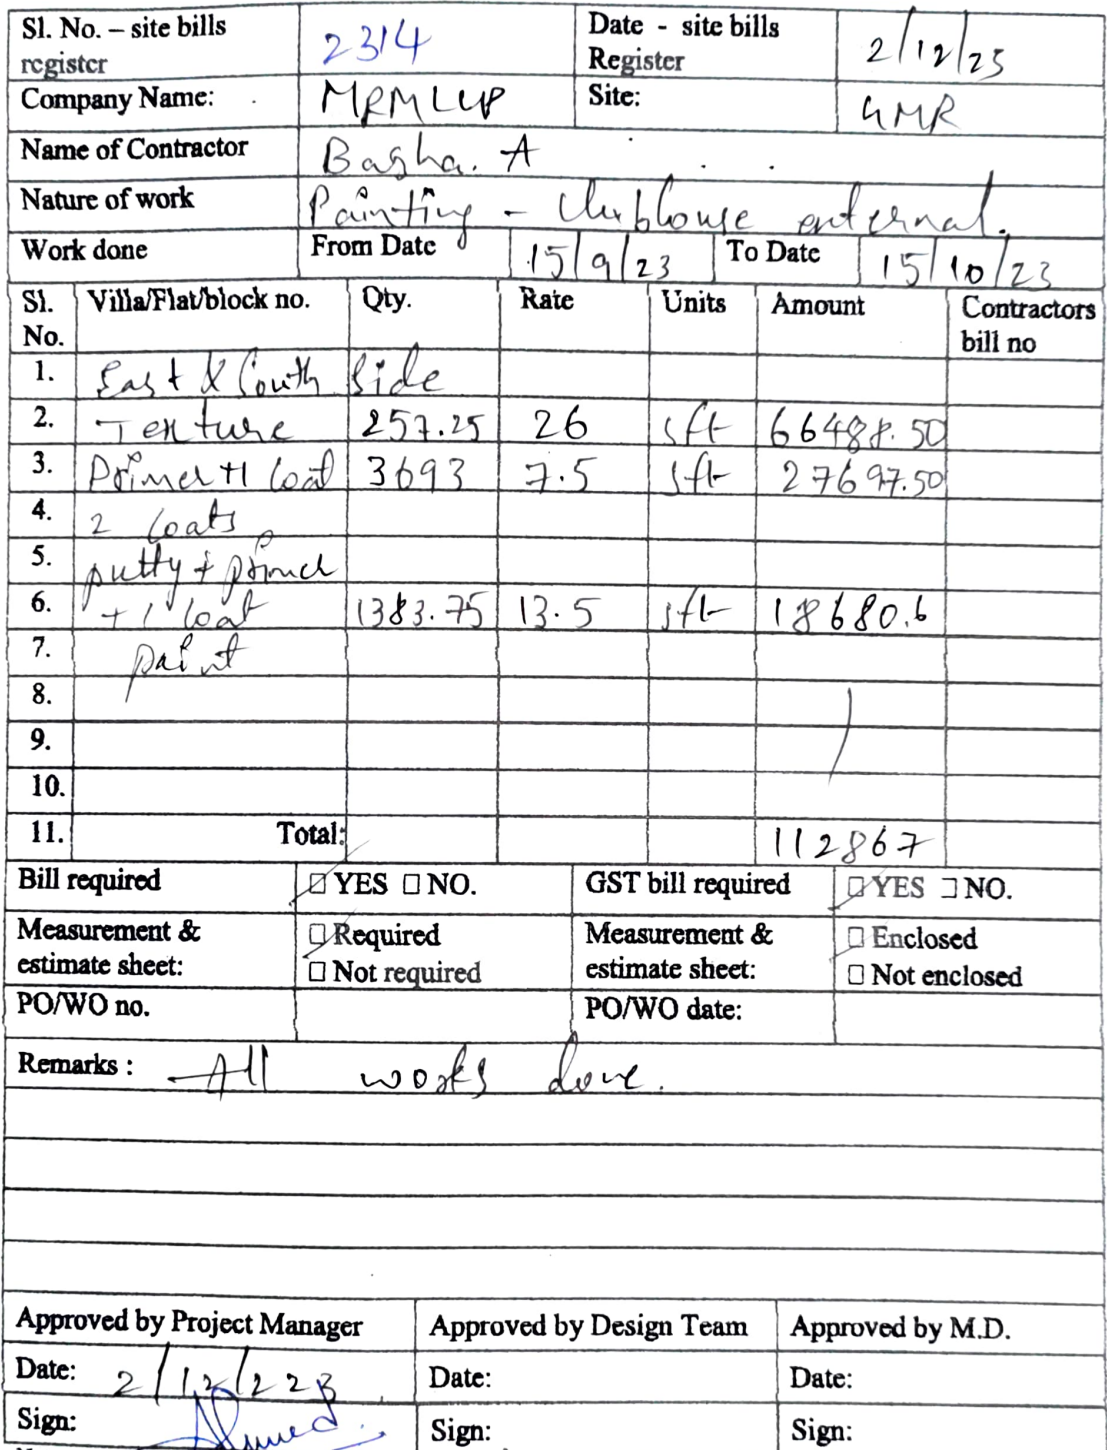 Sl. No. – site bills register 2314 Date - site bills Register 2/12/23
Company Name: MRMLLP Site: GMR
Name of Contractor Basha. A
Nature of work Painting - Clubhouse external.
Work done From Date 15/9/23 To Date 15/10/23
Sl. No. Villa/Flat/block no. Qty. Rate Units Amount Contractors bill no
1. East & South Side
2. Texture 257.25 26 sft 66488.50
3. Primer+1 Coat 3693 7.5 sft 27697.50
4. 2 Coats
5. putty + primer
6. +1 Coat 1383.75 13.5 sft 18680.6
7. paint
8.
9.
10.
11. Total: 112867
Bill required ☐ YES ☐ NO. GST bill required ☐ YES ☐ NO.
Measurement & estimate sheet: ☐ Required Measurement & estimate sheet: ☐ Enclosed
☐ Not required ☐ Not enclosed
PO/WO no. PO/WO date:
Remarks : All works done.
Approved by Project Manager Approved by Design Team Approved by M.D.
Date: 2/12/223 Date: Date:
Sign: Sign: Sign: